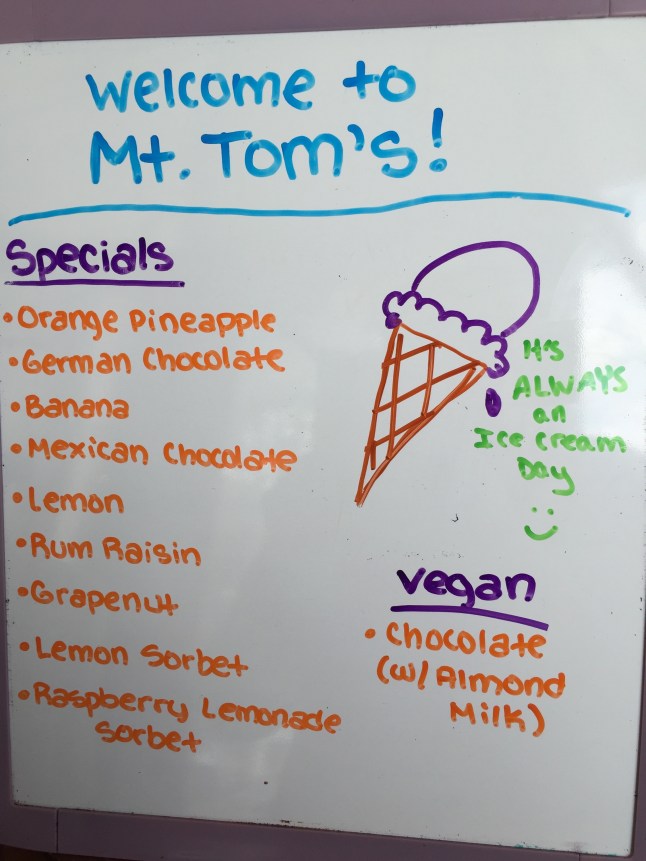 Welcome to
Mt. Tom's!
Specials
• Orange Pineapple
• German Chocolate
• Banana
• Mexican Chocolate
• Lemon
• Rum Raisin
• Grapenut
• Lemon Sorbet
• Raspberry Lemonade
Sorbet
It's
ALWAYS
an
Ice cream
Day
Vegan
• Chocolate
(w/ Almond
Milk)